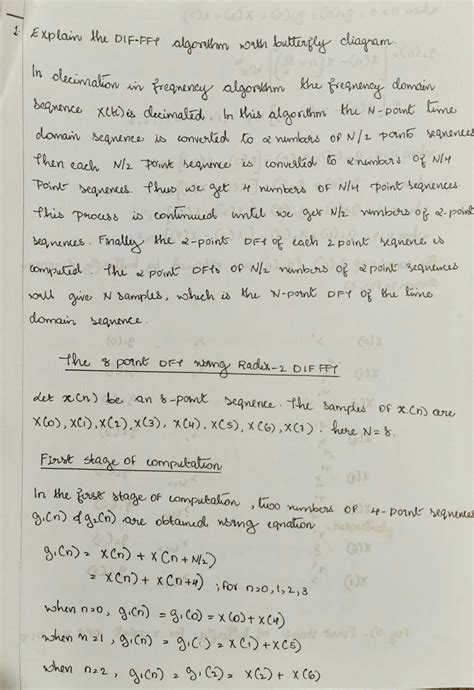 1. Explain the DIF-FFT algorithm with butterfly diagram.
In decimation in frequency algorithm the frequency domain
sequence X(k) is decimated. In this algorithm the N-point time
domain sequence is converted to 2 numbers of N/2 point sequences
Then each N/2 point sequence is converted to 2 numbers of N/4
Point sequences. Thus we get 4 numbers of N/4 point sequences.
This process is continued until we get N/2 numbers of 2-point
sequences. Finally the 2-point DFT of each 2 point sequence is
computed. The 2 point DFTs of N/2 numbers of 2 point sequences
will give N samples, which is the N-point DFT of the time
domain sequence.
The 8 point DFT using Radix-2 DIF FFT
Let x(n) be an 8-point sequence. The samples of x(n) are
x(0), x(1), x(2), x(3), x(4), x(5), x(6), x(7). here N=8.
First stage of computation
In the first stage of computation, two numbers of 4-point sequences
g₁(n) & g₂(n) are obtained using equation
g₁(n) = x(n) + x(n+N/2)
= x(n) + x(n+4) ; for n=0,1,2,3
when n=0, g₁(n) = g₁(0) = x(0) + x(4)
when n=1, g₁(n) = g₁(1) = x(1) + x(5)
when n=2, g₁(n) = g₁(2) = x(2) + x(6)